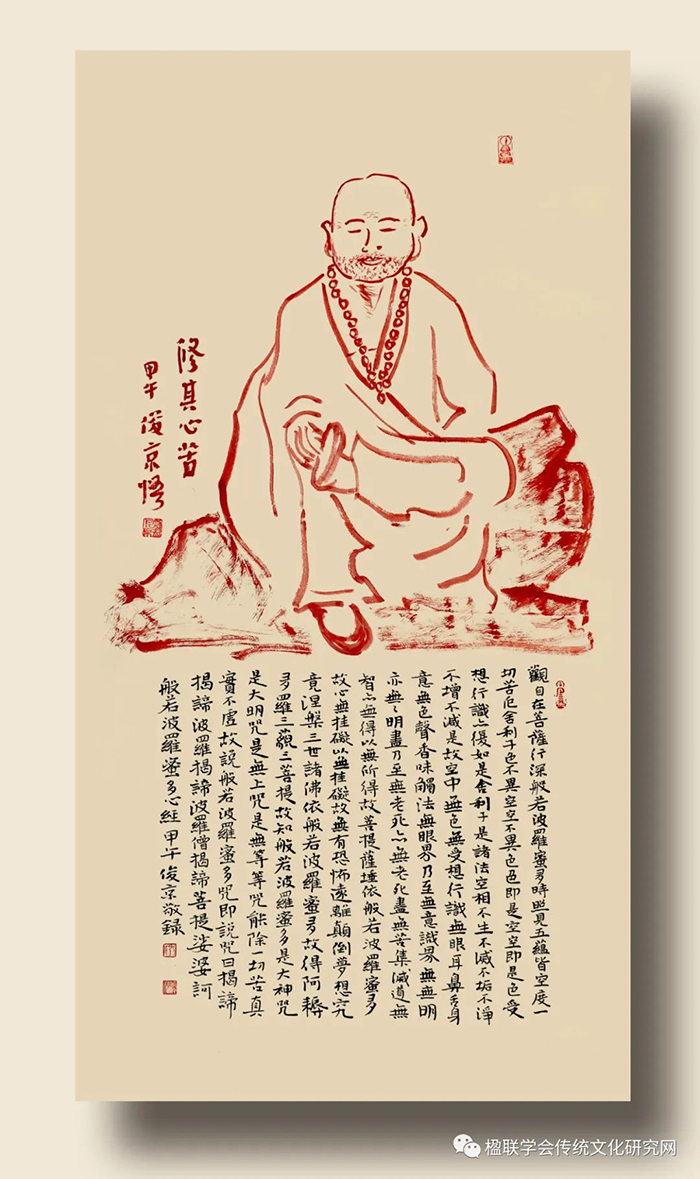 修其心苦
甲午 俊京悟
觀自在菩薩行深般若波羅蜜多時照見五蘊皆空度一
切苦厄舍利子色不異空空不異色色即是空空即是色受
想行識亦復如是舍利子是諸法空相不生不滅不垢不淨
不增不減是故空中無色無受想行識無眼耳鼻舌身
意無色聲香味觸法無眼界乃至無意識界無無明
亦無無明盡乃至無老死亦無老死盡無苦集滅道無
智亦無得以無所得故菩提薩埵依般若波羅蜜多
故心無挂礙以無挂礙故無有恐怖遠離顛倒夢想究
竟涅槃三世諸佛依般若波羅蜜多故得阿耨
多羅三藐三菩提故知般若波羅蜜多是大神咒
是大明咒是無上咒是無等等咒能除一切苦真
實不虛故說般若波羅蜜多咒即說咒曰揭諦
揭諦波羅揭諦波羅僧揭諦菩提娑婆訶
般若波羅蜜多心經 甲午俊京敬録
楹联学会传统文化研究网